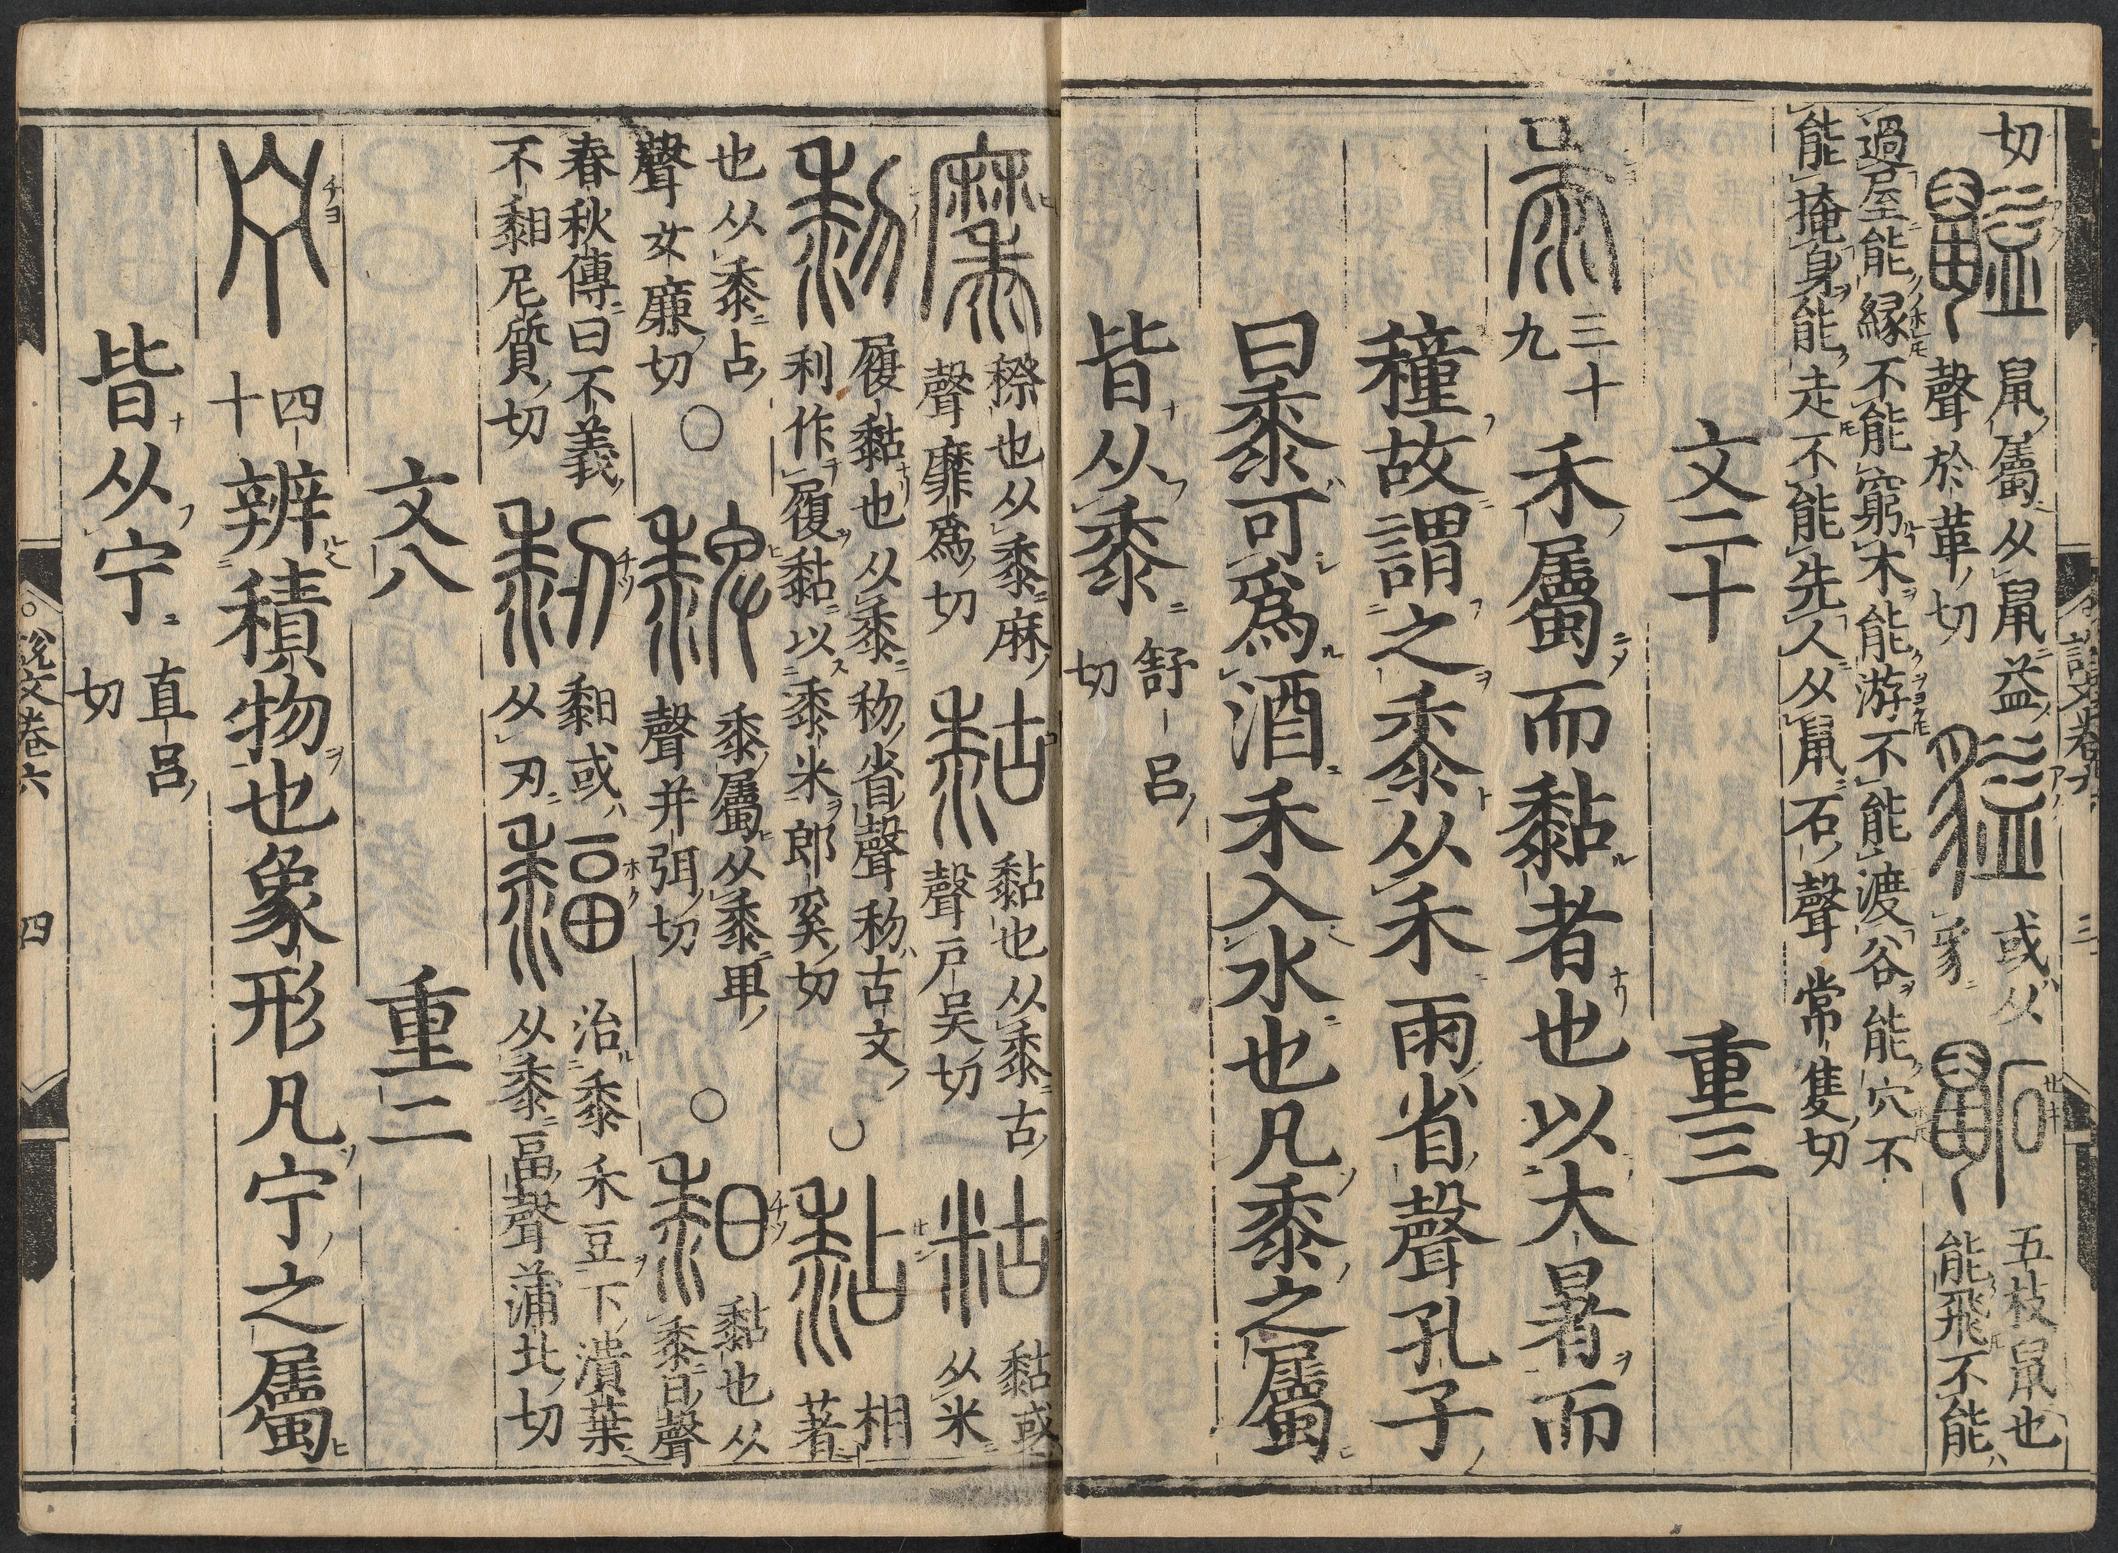 切䶢鼠屬从鼠益
聲於革切貖或从
豸鼫五枝鼠也
能飛不能
過屋能緣不能窮木能游不能渡谷能穴不
能掩身能走不能先人从鼠石聲常隻切
文二十　重三
黍三十九禾屬而黏者也以大暑而
穜故謂之黍从禾雨省聲孔子
曰黍可爲酒禾入水也凡黍之屬
皆从黍舒呂切
說文卷六　三
𪎭穄也从黍麻
聲靡爲切
黏也从黍古
聲戶吳切
粘黏或
从米
履黏也从黍秎省聲秎古文
利作履黏以黍米郎奚切
○
黏相著
也从黍占
聲女廉切
○
䵑黍屬从黍卑
聲并弭切
○
䵒黏也从
黍日聲
春秋傳曰不義
不䵒尼質切
䵒或
从刃
治黍禾豆下潰葉
从黍畐聲蒲北切
文八　重二
宁四十辨積物也象形凡宁之屬
皆从宁直呂切
說文卷六　四